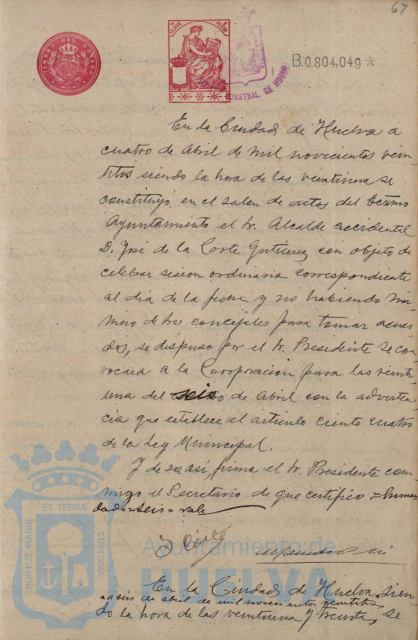 67
B.0.804.049 *
En la Ciudad de Huelva a
cuatro de Abril de mil novecientos vein
titos siendo la hora de las veintiuna se
constituyó en el salon de actos del Excmo
Ayuntamiento el Sr. Alcalde accidental
D. José de la Corte Gutierrez con objeto de
celebrar sesion ordinaria correspondiente
al dia de la fecha y no habiendo nú-
mero de tres concejales para tomar acuer
dos, se dispuso por el Sr. Presidente se con
vocara a la Corporación para las veinti
una del seis de Abril con la adverten
cia que establece el articulo ciento cuatro
de la Ley Municipal.
Y de ser asi firma el Sr. Presidente con
migo el Secretario de que certifico = Enmen
dado = seis = vale
PORTUS MARIS ET TERRAE CUSTODIA
Ayuntamiento de
HUELVA
En la Ciudad de Huelva, sien
do la hora de las veintiuna y treinta, se